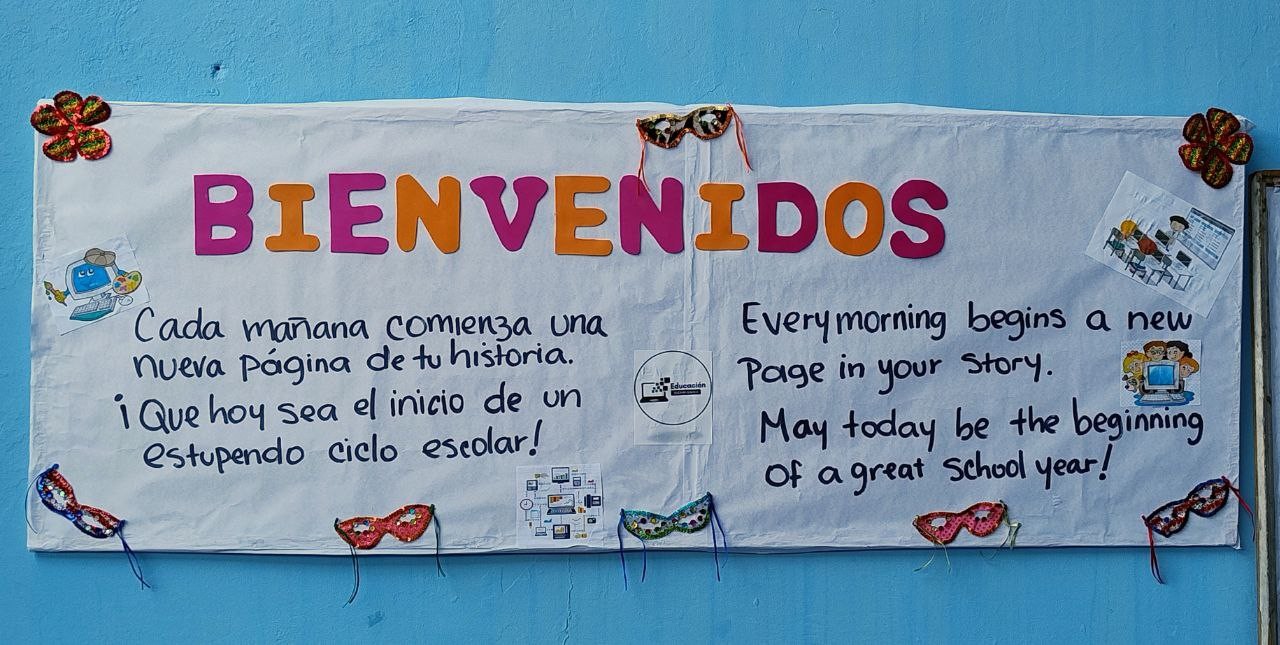 BIENVENIDOS
Cada mañana comienza una
nueva página de tu historia.
¡Que hoy sea el inicio de un
estupendo ciclo escolar!
Educación
Every morning begins a new
page in your story.
May today be the beginning
of a great school year!